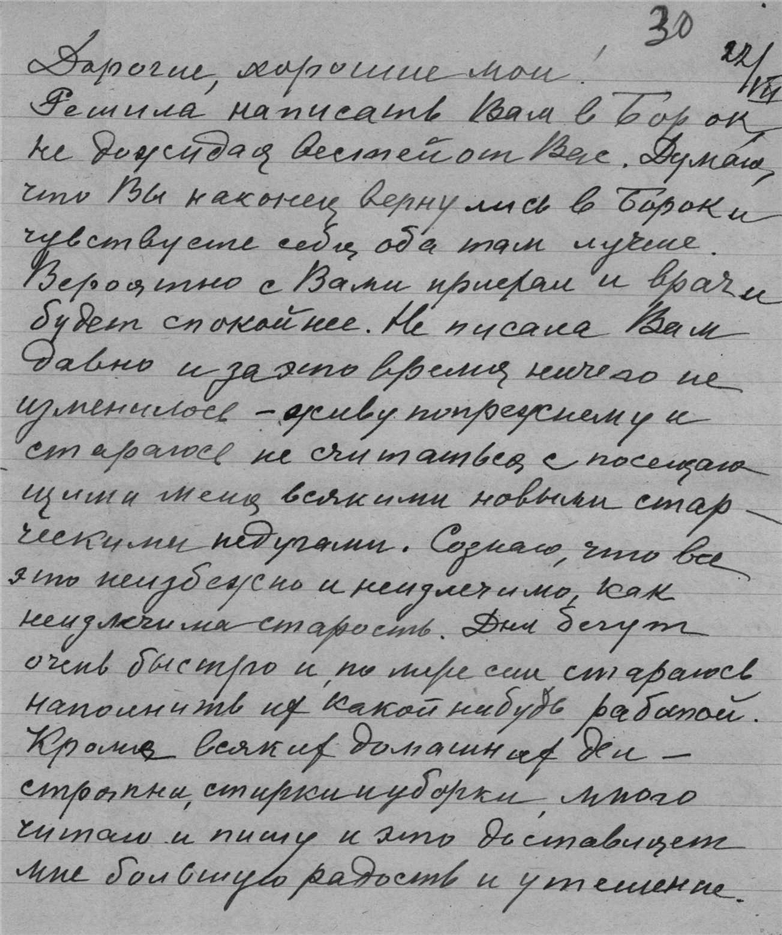 30
22/VII
Дорогие, хорошие мои!
Решила написать Вам в Борок,
не дожидая вестей от Вас. Думаю,
что Вы наконец вернулись в Борок и
чувствуете себя оба там лучше.
Вероятно с Вами приехал и врач и
будет спокойнее. Не писала Вам
давно и за это время ничего не
изменилось – живу попрежнему и
стараюсь не считаться с посещаю
щими меня всякими новыми стар–
ческими недугами. Сознаю, что все
это неизбежно и неизлечимо, как
неизлечима старость. Дни бегут
очень быстро и, по мере сил стараюсь
наполнить их какой нибудь работой.
Кроме всяких домашних дел –
стряпни, стирки и уборки, много
читаю и пишу и это доставляет
мне большую радость и утешение.